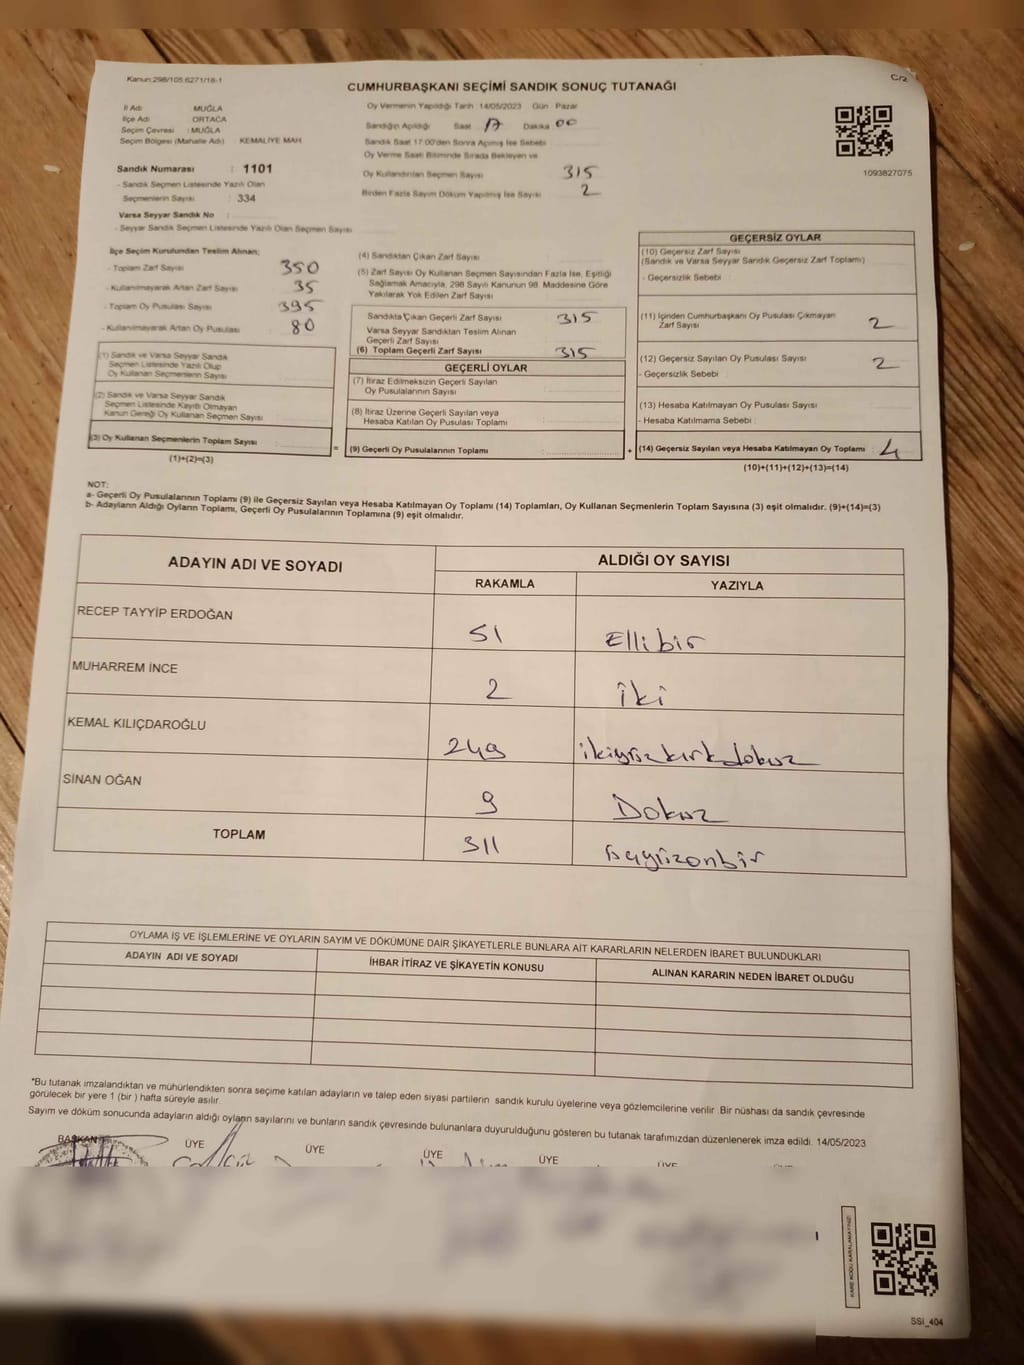 Kanun:298/105.6271/18-1
C/2
CUMHURBAŞKANI SEÇİMİ SANDIK SONUÇ TUTANAĞI
İl Adı : MUĞLA
İlçe Adı : ORTACA
Seçim Çevresi : MUĞLA
Seçim Bölgesi (Mahalle Adı) : KEMALİYE MAH.
Oy Vermenin Yapıldığı Tarih : 14/05/2023 Gün : Pazar
Sandığın Açıldığı Saat 17 Dakika 00
Sandık Saat 17:00'den Sonra Açılmış İse Sebebi
Oy Verme Saati Bitiminde Sırada Bekleyen ve
Oy Kullandırılan Seçmen Sayısı 315
Birden Fazla Sayım Döküm Yapılmış İse Sayısı 2
1093827075
Sandık Numarası : 1101
- Sandık Seçmen Listesinde Yazılı Olan
Seçmenlerin Sayısı : 334
Varsa Seyyar Sandık No :
- Seyyar Sandık Seçmen Listesinde Yazılı Olan Seçmen Sayısı
İlçe Seçim Kurulundan Teslim Alınan;
- Toplam Zarf Sayısı 350
- Kullanılmayarak Artan Zarf Sayısı 35
- Toplam Oy Pusulası Sayısı 395
- Kullanılmayarak Artan Oy Pusulası 80
(1) Sandık ve Varsa Seyyar Sandık
Seçmen Listesinde Yazılı Olup
Oy Kullanan Seçmenlerin Sayısı
(2) Sandık ve Varsa Seyyar Sandık
Seçmen Listesinde Kayıtlı Olmayan
Kanun Gereği Oy Kullanan Seçmen Sayısı
(3) Oy Kullanan Seçmenlerin Toplam Sayısı :
(1)+(2)=(3)
(4) Sandıktan Çıkan Zarf Sayısı
(5) Zarf Sayısı Oy Kullanan Seçmen Sayısından Fazla İse, Eşitliği
Sağlamak Amacıyla, 298 Sayılı Kanunun 98. Maddesine Göre
Yakılarak Yok Edilen Zarf Sayısı
Sandıkta Çıkan Geçerli Zarf Sayısı 315
Varsa Seyyar Sandıktan Teslim Alınan
Geçerli Zarf Sayısı
(6) Toplam Geçerli Zarf Sayısı 315
GEÇERLİ OYLAR
(7) İtiraz Edilmeksizin Geçerli Sayılan
Oy Pusulalarının Sayısı
(8) İtiraz Üzerine Geçerli Sayılan veya
Hesaba Katılan Oy Pusulası Toplamı
= (9) Geçerli Oy Pusulalarının Toplamı :
GEÇERSİZ OYLAR
(10) Geçersiz Zarf Sayısı
(Sandık ve Varsa Seyyar Sandık Geçersiz Zarf Toplamı)
- Geçersizlik Sebebi :
(11) İçinden Cumhurbaşkanı Oy Pusulası Çıkmayan
Zarf Sayısı 2
(12) Geçersiz Sayılan Oy Pusulası Sayısı 2
- Geçersizlik Sebebi :
(13) Hesaba Katılmayan Oy Pusulası Sayısı
- Hesaba Katılmama Sebebi :
+ (14) Geçersiz Sayılan veya Hesaba Katılmayan Oy Toplamı : 4
(10)+(11)+(12)+(13)=(14)
NOT:
a- Geçerli Oy Pusulalarının Toplamı (9) ile Geçersiz Sayılan veya Hesaba Katılmayan Oy Toplamı (14) Toplamları, Oy Kullanan Seçmenlerin Toplam Sayısına (3) eşit olmalıdır. (9)+(14)=(3)
b- Adayların Aldığı Oyların Toplamı, Geçerli Oy Pusulalarının Toplamına (9) eşit olmalıdır.
ADAYIN ADI VE SOYADI
ALDIĞI OY SAYISI
RAKAMLA YAZIYLA
RECEP TAYYİP ERDOĞAN 51 Ellibir
MUHARREM İNCE 2 iki
KEMAL KILIÇDAROĞLU 249 ikiyüzkırkdokuz
SİNAN OĞAN 9 Dokuz
TOPLAM 311 üçyüzonbir
OYLAMA İŞ VE İŞLEMLERİNE VE OYLARIN SAYIM VE DÖKÜMÜNE DAİR ŞİKAYETLERLE BUNLARA AİT KARARLARIN NELERDEN İBARET BULUNDUKLARI
ADAYIN ADI VE SOYADI İHBAR İTİRAZ VE ŞİKAYETİN KONUSU ALINAN KARARIN NEDEN İBARET OLDUĞU
"Bu tutanak imzalandıktan ve mühürlendikten sonra seçime katılan adayların ve talep eden siyasi partilerin sandık kurulu üyelerine veya gözlemcilerine verilir. Bir nüshası da sandık çevresinde
görülecek bir yere 1 (bir ) hafta süreyle asılır.
Sayım ve döküm sonucunda adayların aldığı oyların sayılarını ve bunların sandık çevresinde bulunanlara duyurulduğunu gösteren bu tutanak tarafımızdan düzenlenerek imza edildi. 14/05/2023
BAŞKAN ÜYE ÜYE ÜYE ÜYE ÜYE
KARE KODU KARALAMAYINIZ!
SSI_404